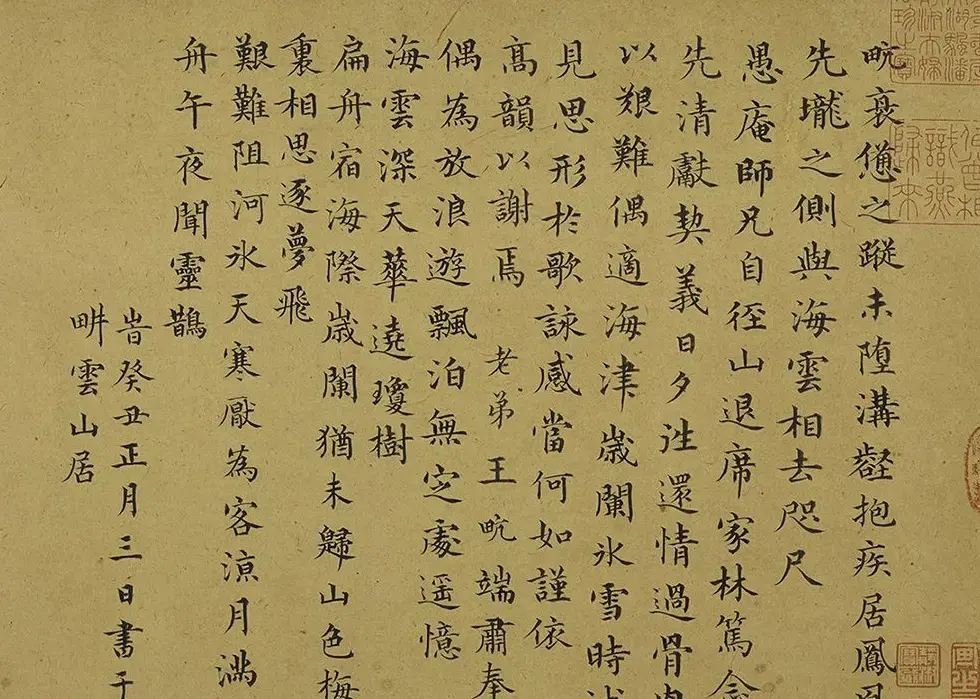 衰憊之蹤未墮溝壑抱疾居鳳
先壠之側與海雲相去咫尺
愚庵師兄自徑山退席家林篤念
先清獻契義日夕往還情過骨肉
以艱難偶適海津歲闌氷雪時
見思形於歌詠感當何如謹依
高韻以謝焉 老弟王端肅奉
偶為放浪遊飄泊無定處遥憶
海雲深天華遶瓊樹
扁舟宿海際歲闌猶未歸山色梅
裏相思逐夢飛
艱難阻河氷天寒厭為客凉月滿
舟午夜聞靈鵲
旹癸丑正月三日書于
畊雲山居